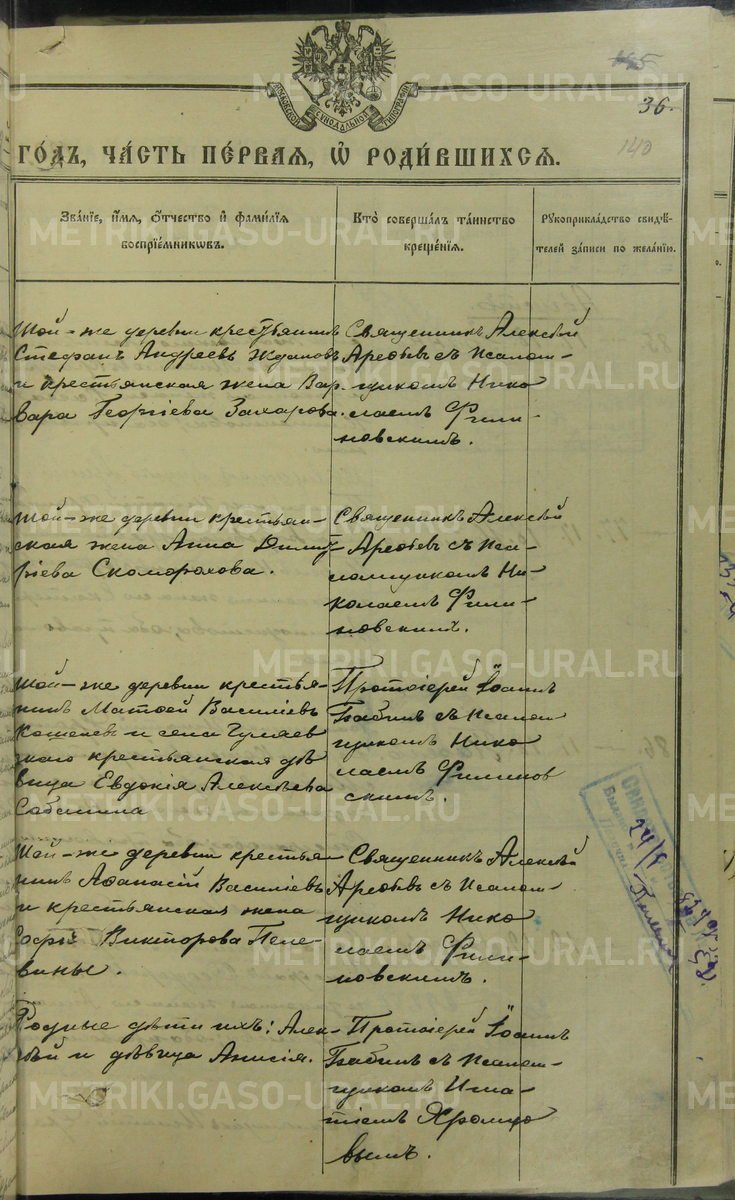 METRIKI.GASO-URAL.RU
36.
140
ГО́ДЪ, ЧА́СТЬ ПЕ́РВАЯ, Ѡ РОДИ́ВШИХСЯ.
ЗВА́НІЕ, И́МЯ, О́ТЧЕСТВО И҆ ФАМИ́ЛІЯ
ВОСПРІЕ́МНИКѠВЪ.
КТО̀ СОВЕРША́ЛЪ ТА́ИНСТВО
КРЕЩЕ́НІЯ.
РУКОПРИКЛА́ДСТВО СВИДѢ́-
ТЕЛЕЙ ЗА́ПИСИ ПО ЖЕЛА́НІЮ.
Той-же деревни крестьянинъ
Стефанъ Андреевъ Ждановъ
и крестьянская жена Вар-
вара Георгіева Захарова.
Священникъ Алексѣй
Арефьевъ съ Псалом-
щикомъ Нико
лаемъ Фили-
новскимъ.
Той-же деревни крестьян-
ская жена Анна Димит-
ріева Скоморохова.
Священникъ Алексѣй
Арефьевъ съ Пса-
ломщикомъ Ни-
колаемъ Фили-
новскимъ.
Той-же деревни крестья-
нинъ Матѳей Василіевъ
Кошелевъ и села
крестьянская дѣ
вица Евдокія Алексѣева
Протоіерей Іоаннъ
Бабинъ съ Псалом-
щикомъ Нико
лаемъ Филинов
скимъ.
Той-же деревни крестья-
нинъ Аѳанасій Василіевъ
и крестьянская жена
Софія Викторова Пеле-
вины.
Священникъ Алексѣй
Арефьевъ съ Псалом-
щикомъ Нико
лаемъ Фили-
новскимъ.
Родные дѣти ихъ: Алек-
сѣй и дѣвица Анисія.
Протоіерей Іоаннъ
Бабинъ съ Псалом-
щикомъ Игна-
тіемъ Яромцо
вымъ.